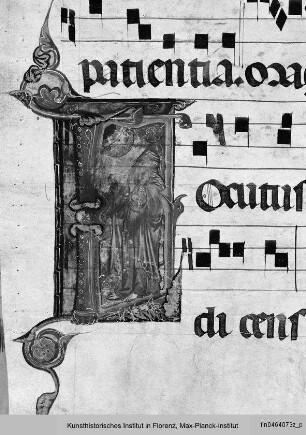 patientia. ora
ocutus
di cens
Kunsthistorisches Institut in Florenz, Max-Planck-Institut
fln0464073z_p